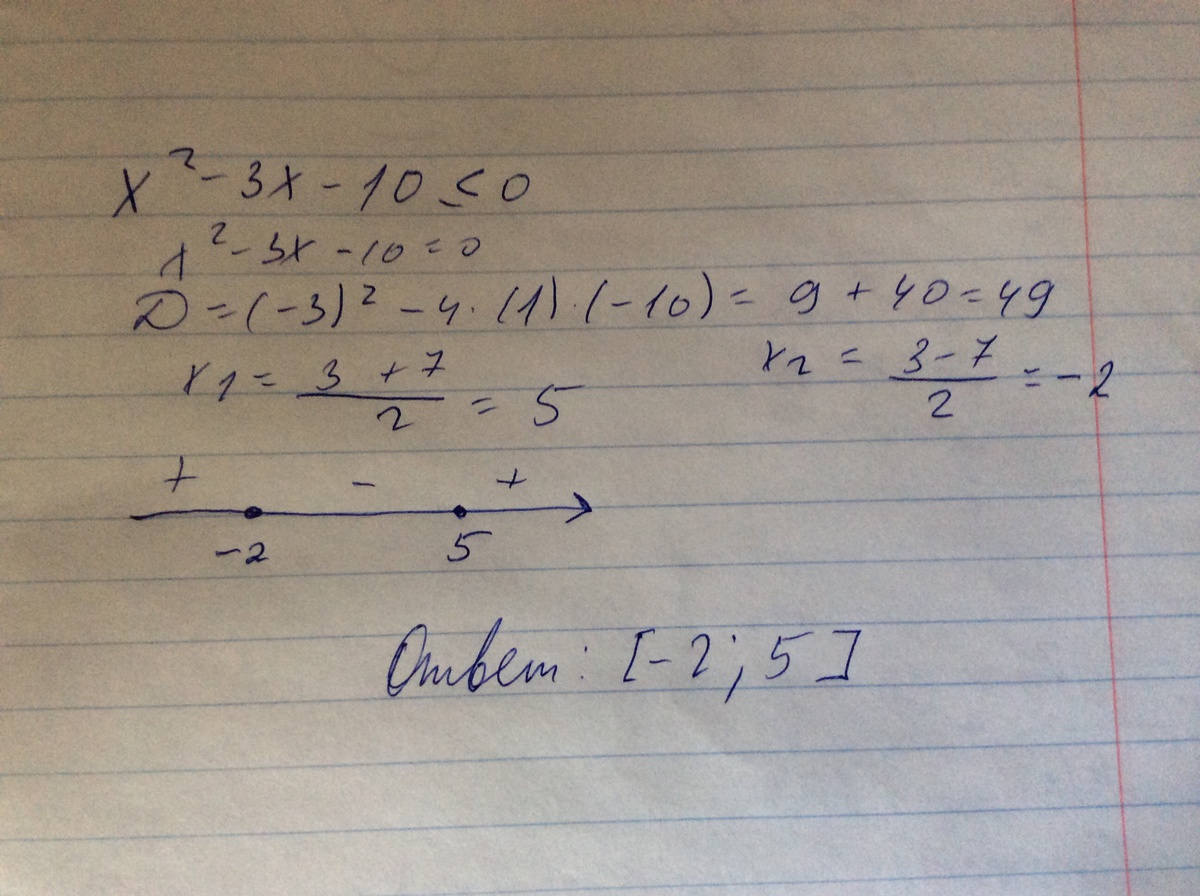 x² - 3x - 10 ≤ 0
x² - 3x - 10 = 0
D = (-3)² - 4 · (1) · (-10) = 9 + 40 = 49
x₁ = (3 + 7)/2 = 5 x₂ = (3 - 7)/2 = -2
+ - +
-2 5
Ответ: [-2; 5]